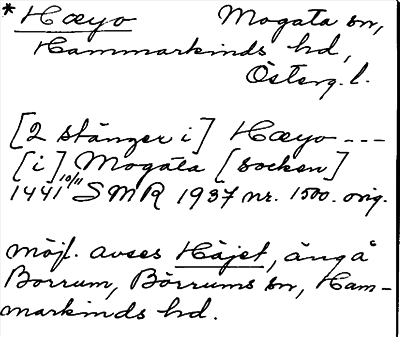 * Hæyo Mogata sn,
Hammarkinds hd,
Österg.l.
[2 stänger i] Hæyo ---
[i] Mogata [socken]
1441 10/11 SMR 1937 nr. 1500. orig.
möjl. avses Häjet, äng å
Borrum, Börrums sn, Ham-
markinds hd.